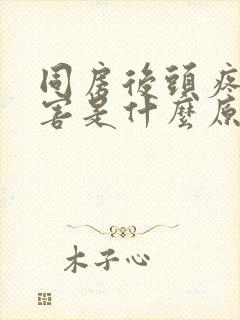 同房後頭疼
害是什麼原
木子心